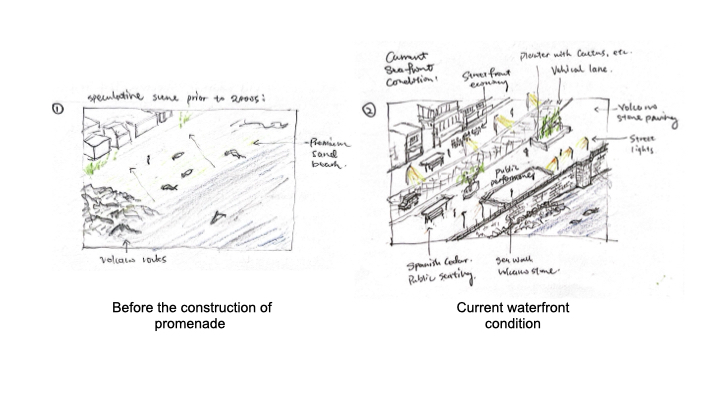 ①
speculative scene prior to 2000s:
Premium
sand
beach.
Volcano rocks
Before the construction of
promenade
②
Current
Sea-front
Condition:
Street front
economy
planter with Cactus, etc.
Vehical lane.
Volcano
stone paving
Street
lights
public
performance
Spanish Cedar.
Public seating.
sea wall
volcano stone.
Current waterfront
condition